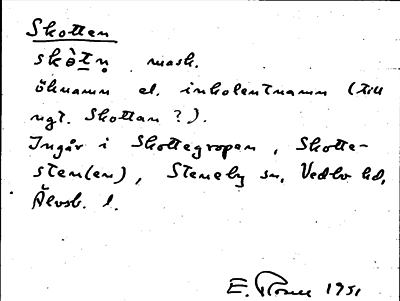 Skotten
skɵ̀tn̥ mask.
öknamn el. inkolentnamn (till
ngt. Skottan?).
Ingår i Skottegropen, Skotte-
sten(en), Steneby sn, Vedbo hd,
Älvsb. l.
E. 1951